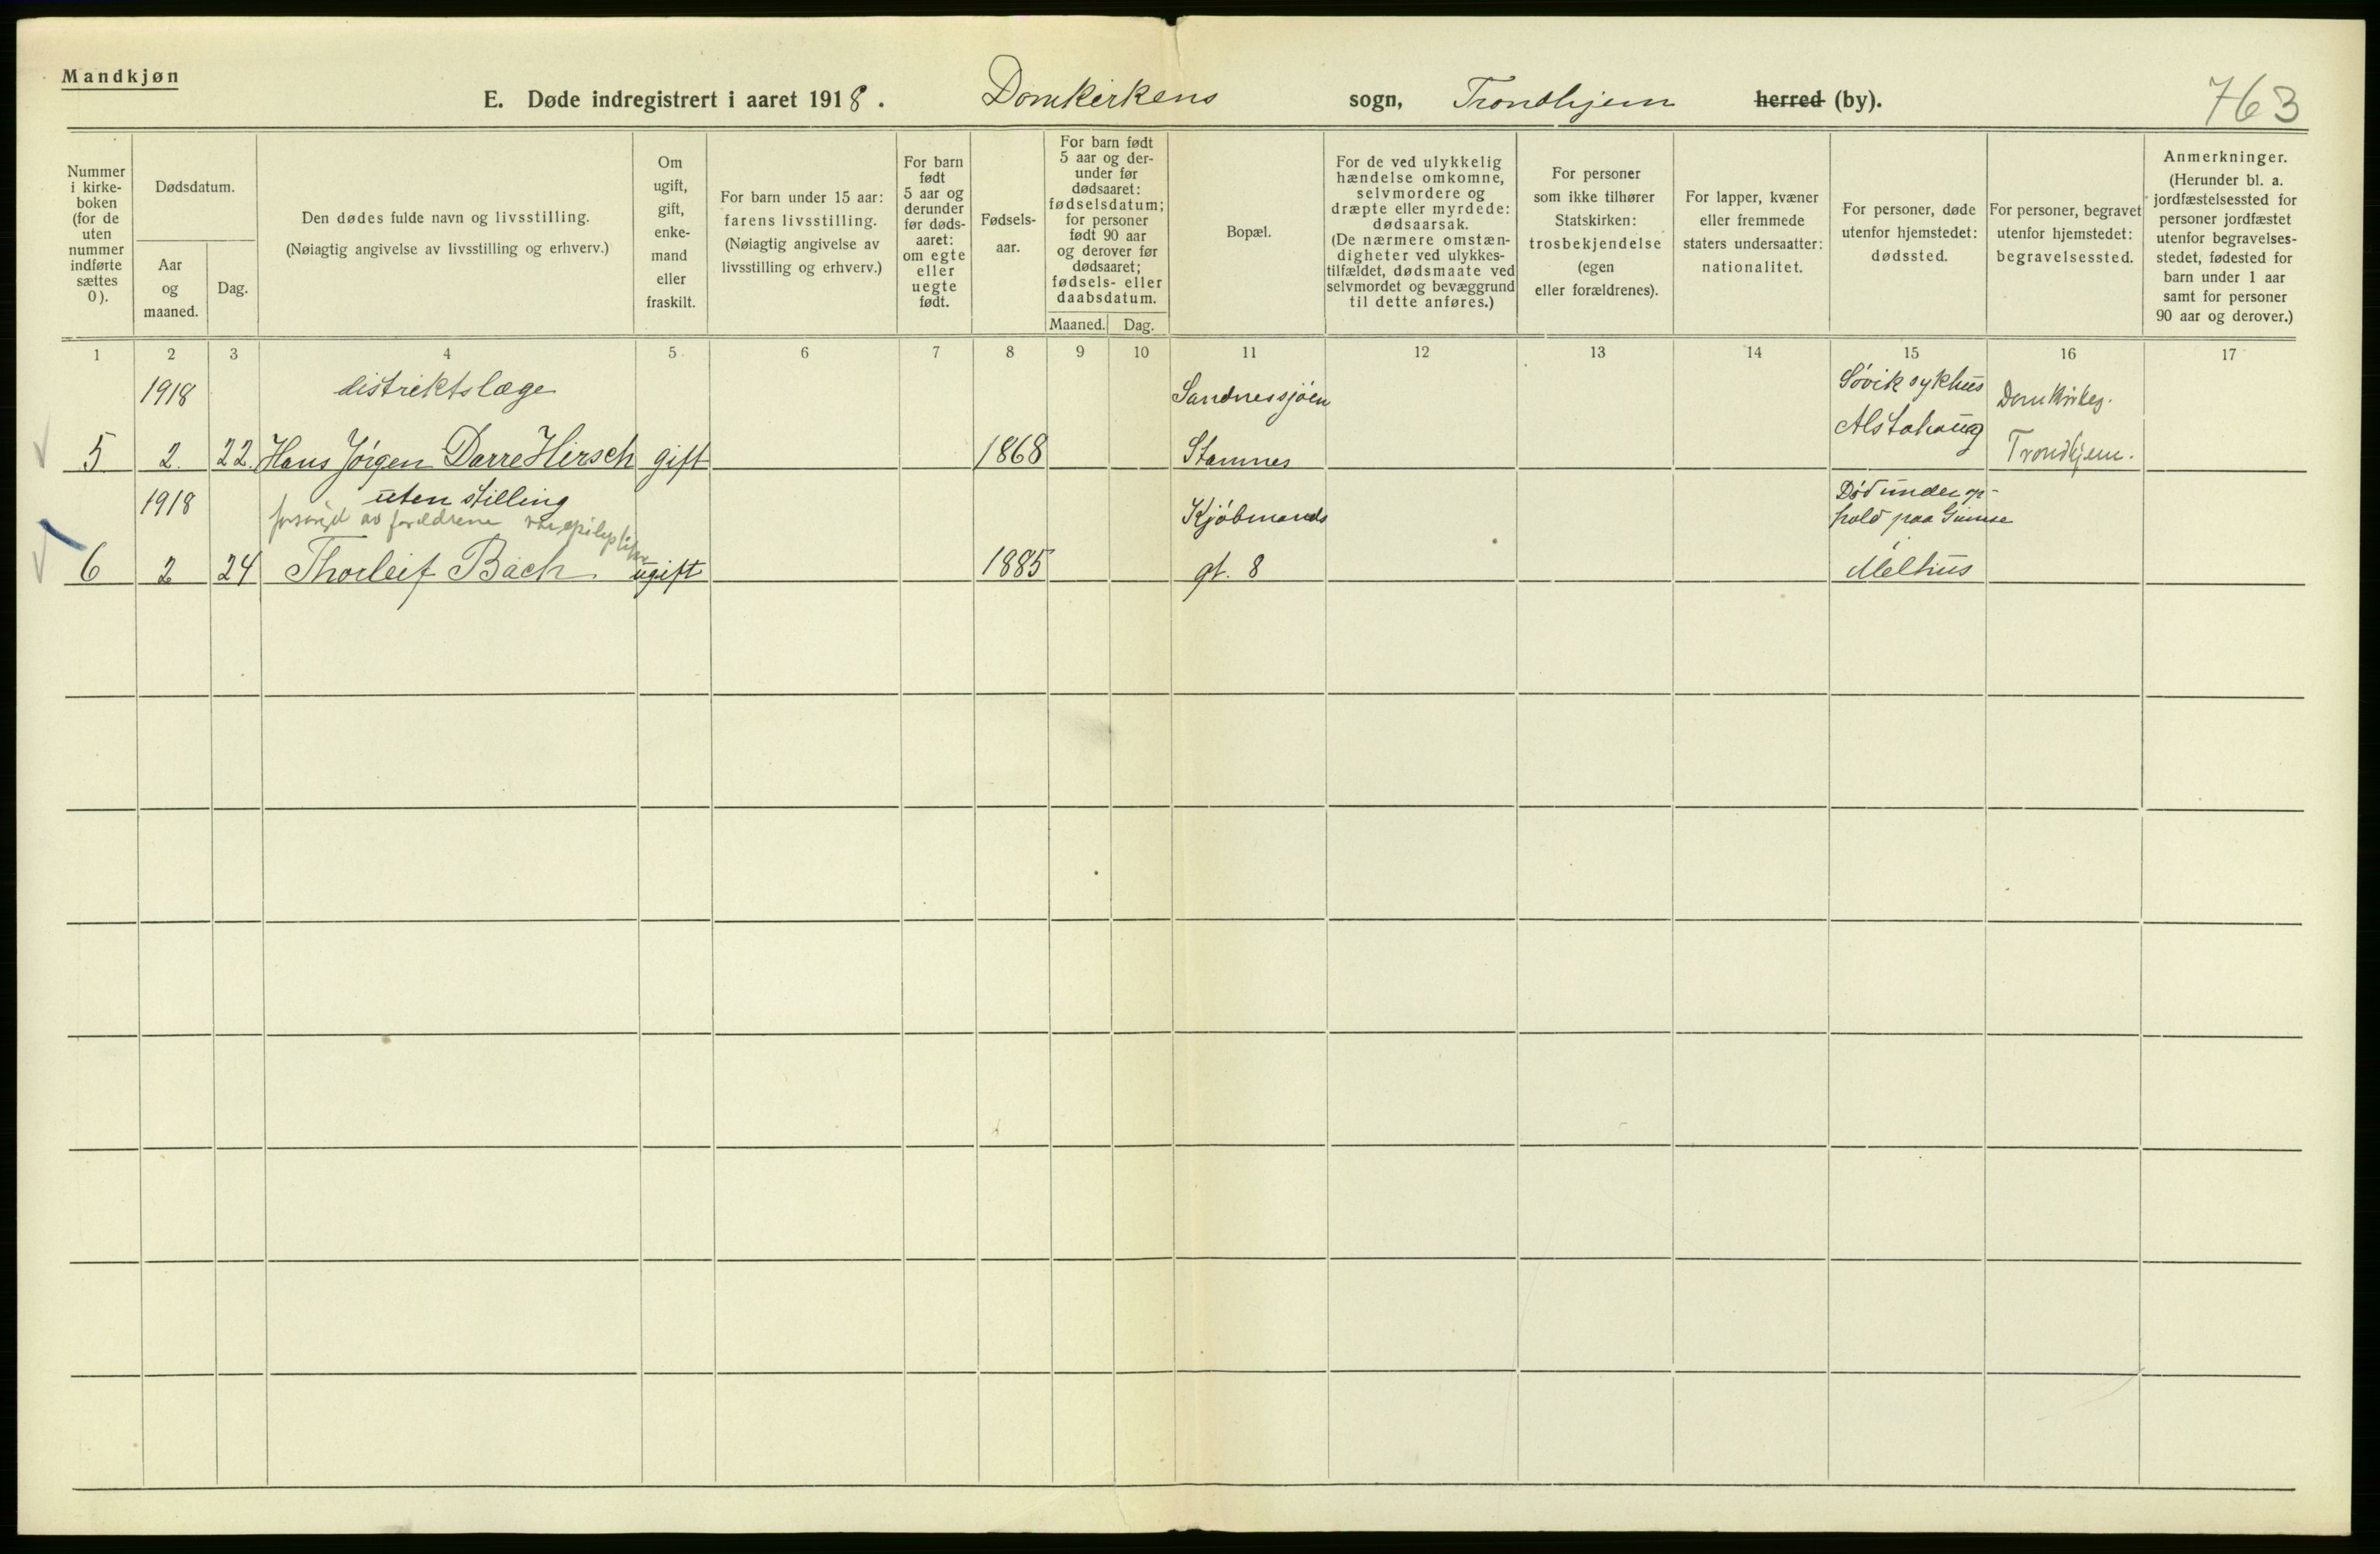 Mandkjøn
E. Døde indregistrert i aaret 1918. Domkirkens sogn, Trondhjem herred (by).
763
Nummer
i kirke-
boken
(for de
uten
nummer
indførte
sættes
0).
Dødsdatum.
Aar
og
maaned.
Dag.
Den dødes fulde navn og livsstilling.
(Nøiagtig angivelse av livsstilling og erhverv.)
Om
ugift,
gift,
enke-
mand
eller
fraskilt.
For barn under 15 aar:
farens livsstilling.
(Nøiagtig angivelse av
livsstilling og erhverv.)
For barn
født
5 aar og
derunder
før døds-
aaret:
om egte
eller
uegte
født.
Fødsels-
aar.
For barn født
5 aar og der-
under før
dødsaaret:
fødselsdatum;
for personer
født 90 aar
og derover før
dødsaaret;
fødsels- eller
daabsdatum.
Maaned.
Dag.
Bopæl.
For de ved ulykkelig
hændelse omkomne,
selvmordere og
dræpte eller myrdede:
dødsaarsak.
(De nærmere omstæn-
digheter ved ulykkes-
tilfældet, dødsmaate ved
selvmordet og bevæggrund
til dette anføres.)
For personer
som ikke tilhører
Statskirken:
trosbekjendelse
(egen
eller forældrenes).
For lapper, kvæner
eller fremmede
staters undersaatter:
nationalitet.
For personer, døde
utenfor hjemstedet:
dødssted.
For personer, begravet
utenfor hjemstedet:
begravelsessted.
Anmerkninger.
(Herunder bl. a.
jordfæstelsessted for
personer jordfæstet
utenfor begravelses-
stedet, fødested for
barn under 1 aar
samt for personer
90 aar og derover.)
1 2 3 4 5 6 7 8 9 10 11 12 13 14 15 16 17
1918 distriktslæge Sandnessjøen Søvik sykhus Domkirkeg.
Alstahaug
5 2. 22. Hans Jørgen Darre Hirsch gift 1868 Stamnes Trondhjem.
1918 uten stilling Kjøbmands Død under op-
forsørget av forældrene var epileptiker hold paa Gimse
6 2 24 Thorleif Bach ugift 1885 gt. 8 Melhus